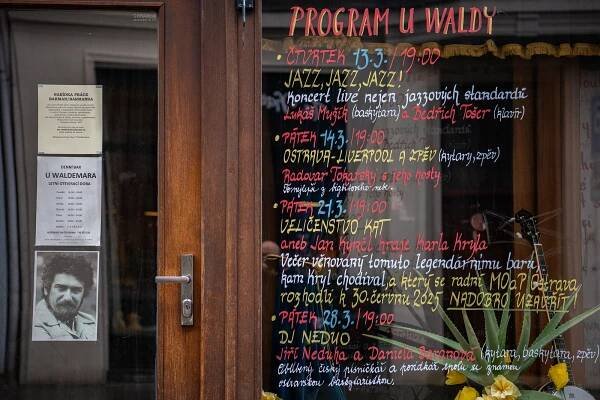 PROGRAM U WALDY
• ČTVRTEK 13.3. / 19:00
JAZZ, JAZZ, JAZZ!
Koncert live nejen jazzových standardů
Lukáš Mužík (baskytara) a Bedřich Tošer (klavír)
• PÁTEK 14.3. / 19:00
OSTRAVA-LIVERPOOL A ZPĚV (kytary, zpěv)
Radovar Tokarský s jeho hosty
• PÁTEK 21.3. / 19:00
VELIČENSTVO KAT
aneb Jan Kyncl hraje Karla Kryla
Večer věnovaný tomuto legendárnímu baru,
kam Kryl chodíval, a který se radní MOaP Ostrava
rozhodli k 30. červnu 2025 NADOBRO UZAVŘÍT!
• PÁTEK 28.3. / 19:00
DJ NEDUO
Jiří Neduha a Daniela Beranová (kytara, baskytara, zpěv)
Oblíbený český písničkář a pořídkář spolu se známou
ostravskou baskytaristkou.
NABÍDKA PRÁCE
BARMAN/BARMANKA
DENNÍ BAR
U WALDEMARA
LETNÍ OTEVÍRACÍ DOBA